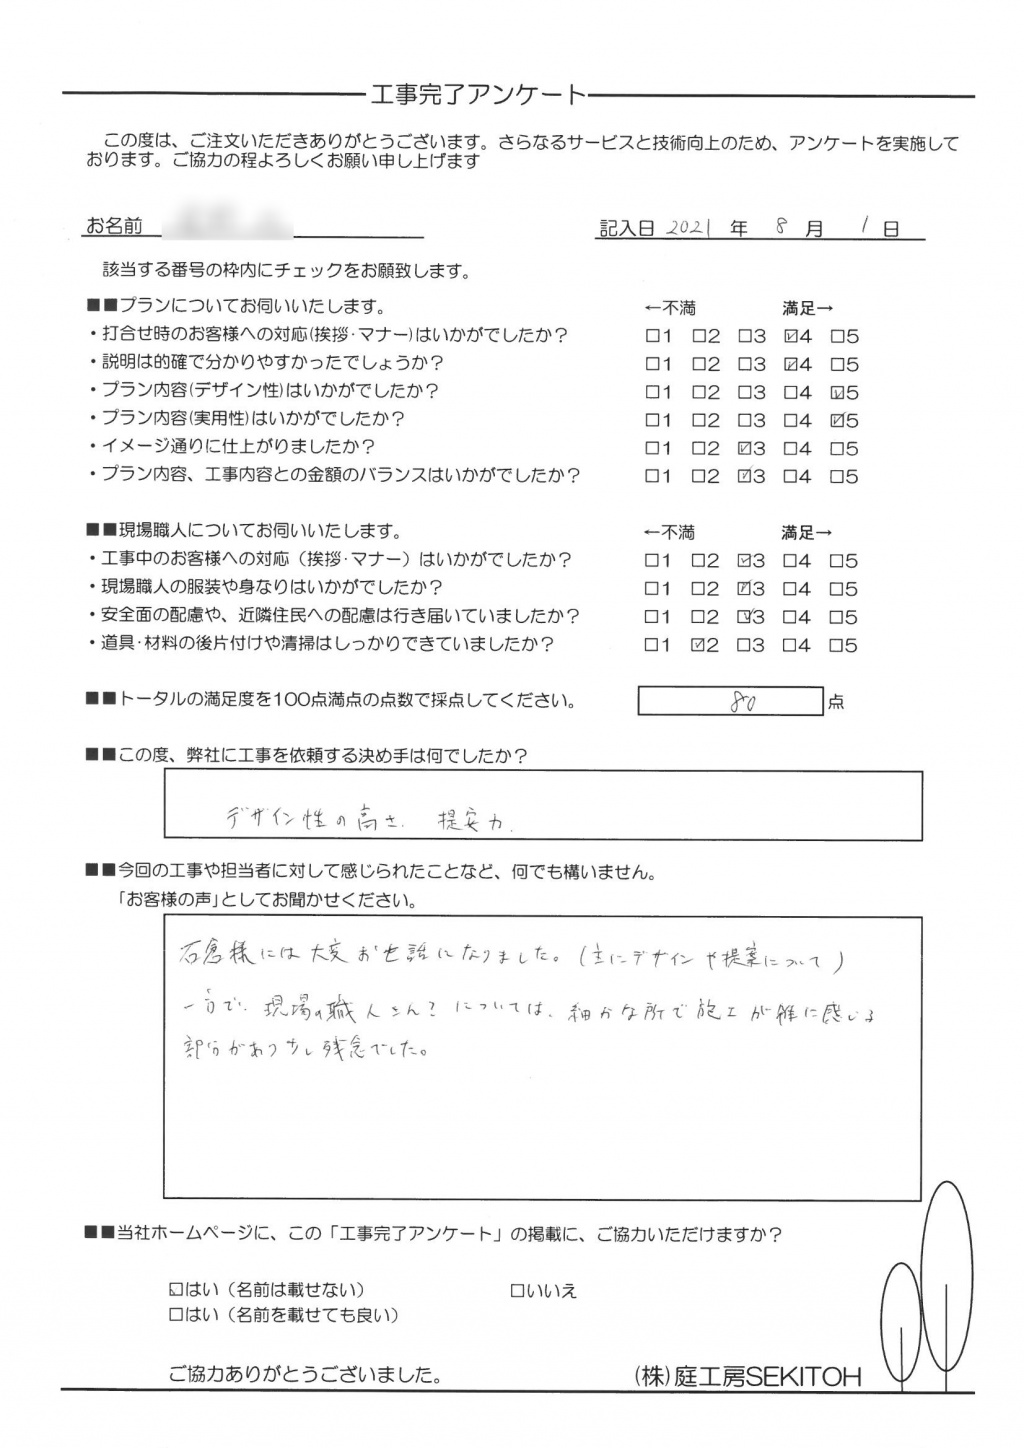 工事完了アンケート
この度は、ご注文いただきありがとうございます。さらなるサービスと技術向上のため、アンケートを実施して
おります。ご協力の程よろしくお願い申し上げます
お名前 記入日 2021 年 8 月 1 日
該当する番号の枠内にチェックをお願致します。
■■プランについてお伺いいたします。 ←不満 満足→
・打合せ時のお客様への対応(挨拶・マナー)はいかがでしたか? □1 □2 □3 ☑4 □5
・説明は的確で分かりやすかったでしょうか? □1 □2 □3 ☑4 □5
・プラン内容(デザイン性)はいかがでしたか? □1 □2 □3 □4 ☑5
・プラン内容(実用性)はいかがでしたか? □1 □2 □3 □4 ☑5
・イメージ通りに仕上がりましたか? □1 □2 ☑3 □4 □5
・プラン内容、工事内容との金額のバランスはいかがでしたか? □1 □2 ☑3 □4 □5
■■現場職人についてお伺いいたします。 ←不満 満足→
・工事中のお客様への対応（挨拶・マナー）はいかがでしたか? □1 □2 ☑3 □4 □5
・現場職人の服装や身なりはいかがでしたか? □1 □2 ☑3 □4 □5
・安全面の配慮や、近隣住民への配慮は行き届いていましたか? □1 □2 ☑3 □4 □5
・道具・材料の後片付けや清掃はしっかりできていましたか? □1 ☑2 □3 □4 □5
■■トータルの満足度を100点満点の点数で採点してください。 80 点
■■この度、弊社に工事を依頼する決め手は何でしたか?
デザイン性の高さ. 提案力.
■■今回の工事や担当者に対して感じられたことなど、何でも構いません。
「お客様の声」としてお聞かせください。
石倉様には大変お世話になりました。(主にデザインや提案について)
一方で、現場の職人さん?については、細かな所で施工が雑に感じる
部分があり少し残念でした。
■■当社ホームページに、この「工事完了アンケート」の掲載に、ご協力いただけますか?
☑はい（名前は載せない） □いいえ
□はい（名前を載せても良い）
ご協力ありがとうございました。 (株)庭工房SEKITOH